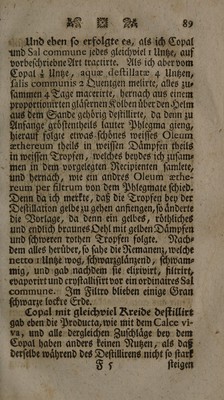 89
Und eben so erfolgte es, als ich Copal
und Sal commune jedes gleichviel 1 Untze, auf
vorbeschriebne Art tractirte. Als ich aber vom
Copal ½ Untze, aquæ destillatæ 4 Untzen,
salis communis 2 Quentgen melirte, alles zu-
sammen 4 Tage macerirte, hernach aus einem
proportionirten gläsernen Kolben über den Helm
aus dem Sande gehörig destillirte, da denn zu
Anfange größtentheils lauter Phlegma gieng,
hierauf folgte etwas schönes weisses Oleum
æthereum theils in weissen Dämpfen theils
in weissen Tropfen, welches beydes ich zusam-
men in dem vorgelegten Recipienten samlete,
und hernach, wie ein andres Oleum æthe-
reum per filtrum von dem Phlegmate schied.
Denn da ich merkte, daß die Tropfen bey der
Destillation gelbe zu gehen anfiengen, so änderte
die Vorlage, da denn ein gelbes, röthliches
und endlich braunes Oehl mit gelben Dämpfen
und schweren rothen Tropfen folgte. Nach-
dem alles herüber, so sahe die Remanenz, welche
netto 1 Untze wog, schwarzglänzend, schwam-
mig, und gab nachdem sie elixivirt, filtrirt,
evaporirt und crystallisirt vor ein ordinaires Sal
commune. Im Filtro blieben einige Gran
schwarze lockre Erde.
Copal mit gleichviel Kreide destillirt
gab eben die Producta, wie mit dem Calce vi-
va, und alle dergleichen Zuschläge bey dem
Copal haben anders keinen Nutzen, als daß
derselbe während des Destillirens nicht so stark
F 5 steigen